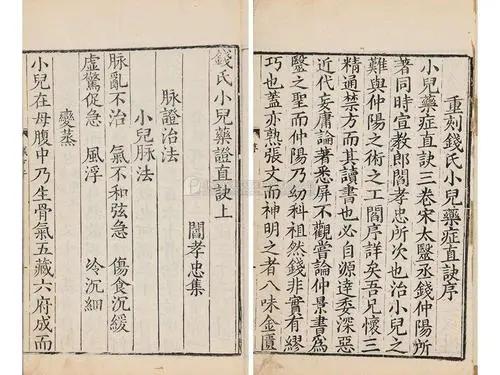 重刻錢氏小兒藥症直訣序
小兒藥症直訣三卷宋太醫丞錢仲陽所
著同時宣教郎閻孝忠所次也治小兒之
難與仲陽之術之工閻序詳矣吾兄懷三
精通禁方而其讀書也必自源達委深惡
近代妄庸論著悉屏不觀嘗論仲景書爲
醫之聖而仲陽乃幼科祖然錢非實有繆
巧也蓋亦熟張文而神明之者八味金匱
錢氏小兒藥證直訣上
閻孝忠集
脉證治法
小兒脉法
脉亂不治 氣不和弦急 傷食沉緩
虛驚促急 風浮 冷沉細
變蒸
小兒在母腹中乃生骨氣五藏六府成而